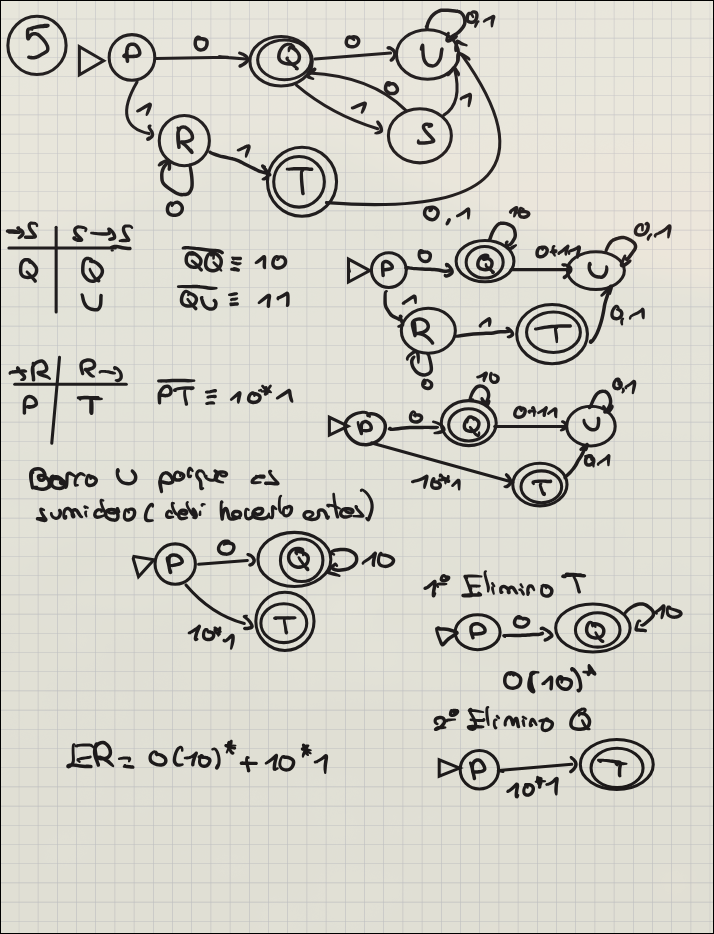 5
P 0 Q 0 U 0,1
0 1 1
1 S
R 1 T
0
0,1
→S S→S
Q Q
U
QQ ≡ 10
QU ≡ 11
P 0 Q 10 0+11 U 0,1
1
R 1 T 0,1
0
→R R→
P T
PT ≡ 10*1
P 0 Q 10 0+11 U 0,1
10*1 T 0,1
Borro U porque es
sumidero (debi hacerlo antes)
P 0 Q 10
10*1 T
1º Elimino T
P 0 Q 10
0(10)*
2º Elimino Q
P 10*1 T
ER = 0(10)* + 10*1